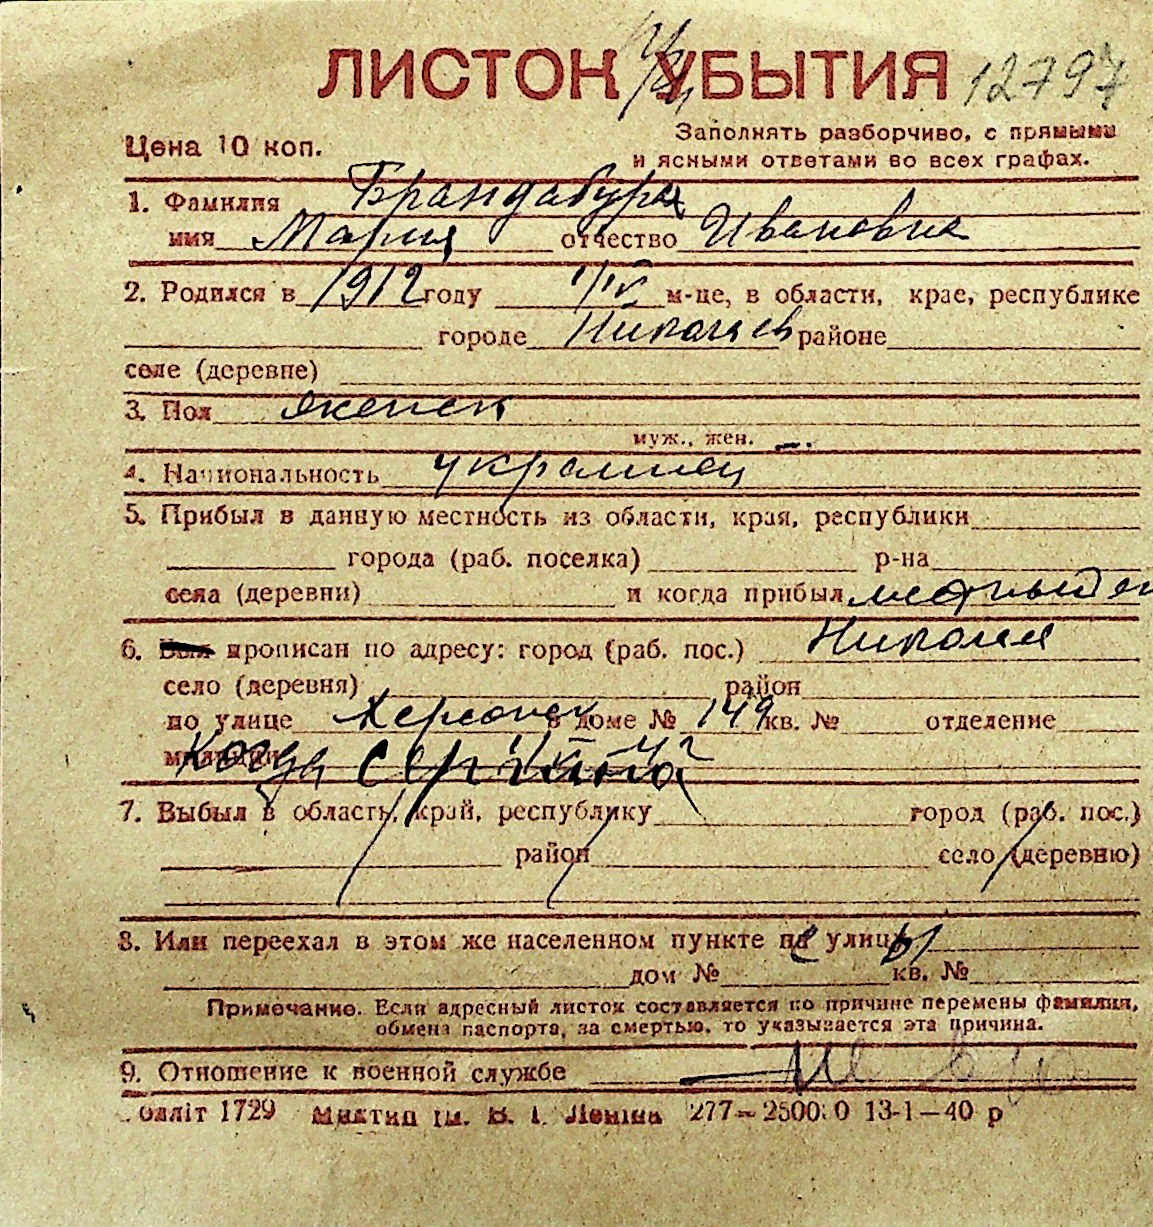 ЛИСТОК УБЫТИЯ 12797
Цена 10 коп.
Заполнять разборчиво, с прямыми
и ясными ответами во всех графах.
1. Фамилия Брандабура
имя Мария отчество Ивановна
2. Родился в 1912 году 1/IV м-це, в области, крае, республике
городе Николаев районе
селе (деревне)
3. Пол женск
муж., жен.
4. Национальность украинец
5. Прибыл в данную местность из области, края, республики
города (раб. поселка) р-на
села (деревни) и когда прибыл местный
6. прописан по адресу: город (раб. пос.) Николаев
село (деревня) район
по улице Херсонск в доме № 149 кв. № отделение
милиции
7. Выбыл в область, край, республику город (раб. пос.)
район село (деревню)
8. Или переехал в этом же населенном пункте на улицу
дом № кв. №
Примечание. Если адресный листок составляется по причине перемены фамилии,
обмена паспорта, за смертью, то указывается эта причина.
9. Отношение к военной службе
1729 ім. В. І. Леніна 277—2500 0 13-1—40 р